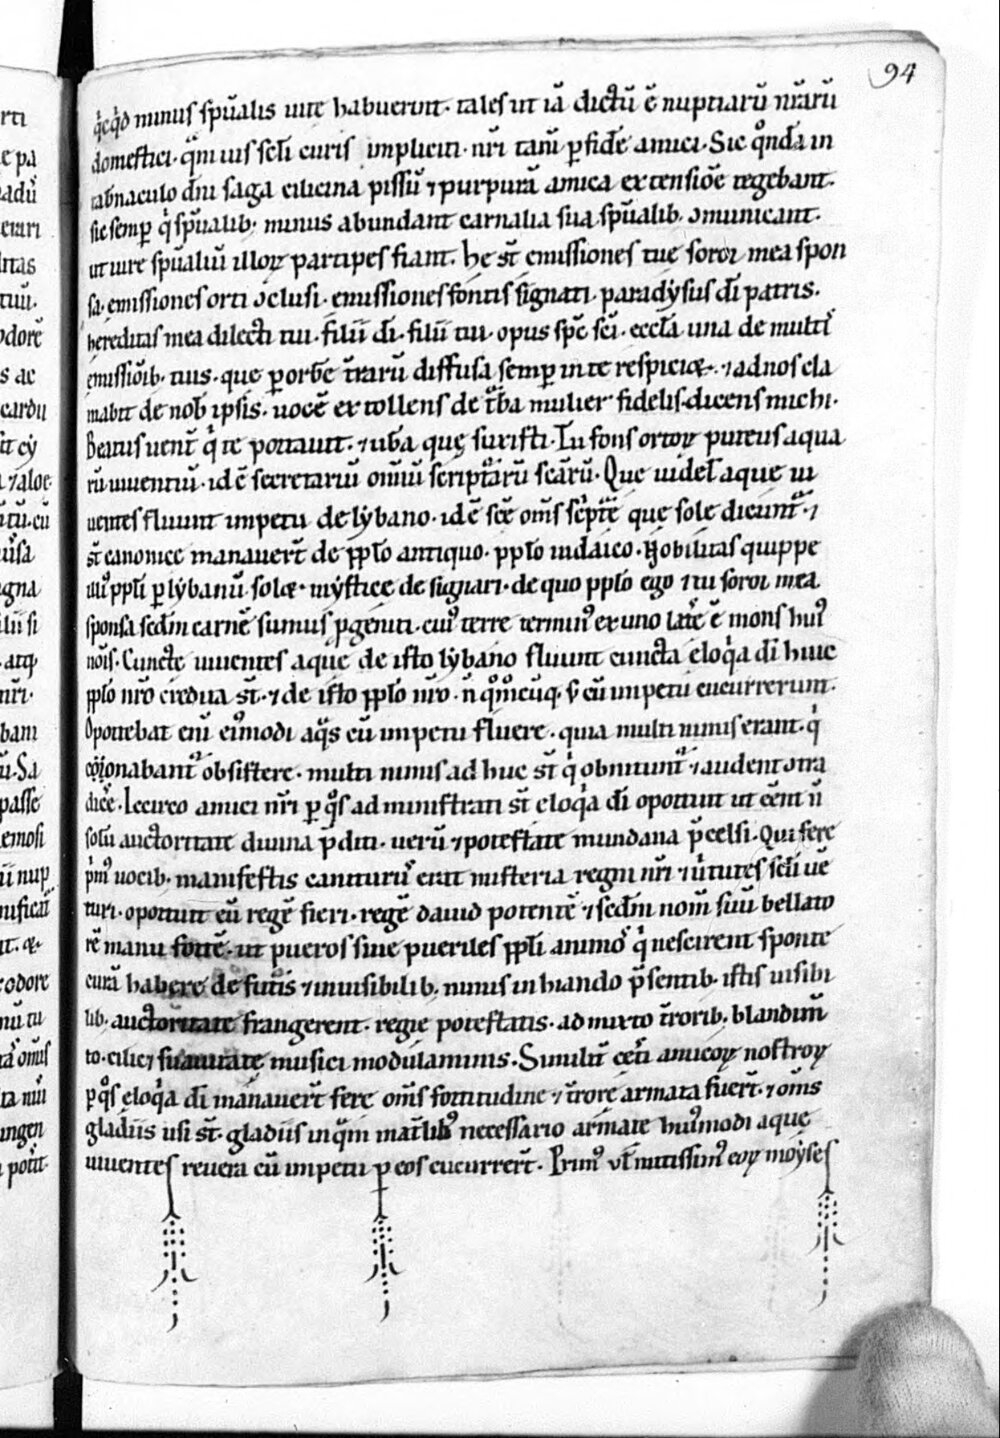 94
q̄cq̇d minus sp̄ualis uite habuerunt. tales ut iā dictū ē nuptiarū nr̄arū
domestici. qͣm uis scl̄i curis impliciti. nr̄i tam̄ p̱ fidē amici. Sic qͦndā in
tab̄naculo dn̄i saga cilicina pissū ⁊ purpurā amica extensiōe tegebant.
sic semp̱ qͥ sp̄ualib; minus abundant carnalia sua sp̄ualib; ɔmunicant.
ut iure sp̄ualiū illoꝝ participes fiant. he st̄ emissiones tue soror mea spon
sa. emissiones orti ɔclusi. emissiones fontis signati. paradysus dī patris.
hereditas mea dilecti tui. filii dī. filii tui. opus sp̄c sc̄i. eccl̄a una de multꝭ
emissiōib; tuis. que p̱ orbē tr̄arū diffusa semp̱ in te respiciet. ⁊ ad nos cla
mabit de nob̄ ipsis. uocē extollens de tͬba mulier fidelis. dicens michi.
Beatus uent̄ qͥ te portauit. ⁊ ub̄a quę suxisti. Tu fons ortoꝝ puteus aqua
rū uiuentiū. id ē secretariū om̄iū scripͭarū sc̄arū. Que uidel̄ aque ui
uentes fluunt impetu de lybano. id ē sc̄e om̄s sc̄pt̄e que sole dicunt᷑ ⁊
st̄ canonice manauer̄t de pp̄lo antiquo. pp̄lo iudaico. Nobilitas quippe
illiꝰ pp̄li p̱ lybanū solet mystice designari. de quo pp̄lo ego ⁊ tu soror mea
sponsa scdm̄ carnē sumus p̱geniti. cuiꝰ terre terminꝰ ex uno lat̄e ē mons huiꝰ
nōis. Cuncte uiuentes aquę de isto lybano fluunt cuncta eloqͥa dī huic
pp̄lo nr̄o credita st̄. ⁊ de isto pp̄lo nr̄o. n̄ qͦm̊cūq; ſ; cū impetu cucurrerunt.
Oportebat eni᷒ eiꝰmodi aqͣs cū impetu fluere. quia multi nimis erant. qͥ
ɔionabant᷑ obsistere. multi nimis ad huc st̄ qͥ obnitunt᷑ ⁊ audent ɔtra
dic̄e. Iccirco amici nr̄i p̱ qͦs administrati st̄ eloqͥa dī oportuit ut eēnt n̄
solū auctoritate diuina p̄diti. uerū ⁊ potestate mundana p̄celsi. Qui fere
pͥmꝰ uocib; manifestis cantiturꝰ erat misteria regni nr̄i ⁊ uͥtutes scl̄i uē
turi. oportuit eū regē fieri. regē dauid potentē ⁊ scdm̄ nom̄ suū bellato
rē manu fortē. ut pueros siue pueriles pp̄li animos qͥ nescirent sponte
curā habere de futͥis ⁊ inuisibilib; nimis inhiando p̄sentib; istis uisibi
lib; auctoritate frangerent. regie potestatis. admixto tr̄rorib; blandim̄
to. eilicꝫ suauitate musici modulaminis. Similit̄ cet̄i amicoꝝ nostroꝝ
p̱ qͦs eloqͥa dī manauer̄t fere om̄s fortitudine ⁊ tr̄rore armata fuer̄t. ⁊ om̄s
gladiis usi st̄. gladiis inqͣm mat̄lib; necessario armate huiꝰmodi aque
uiuentes reuera cū impetu p̱ eos cucurrer̄t. Primꝰ ul̄ mitissimꝰ eoꝝ moyses